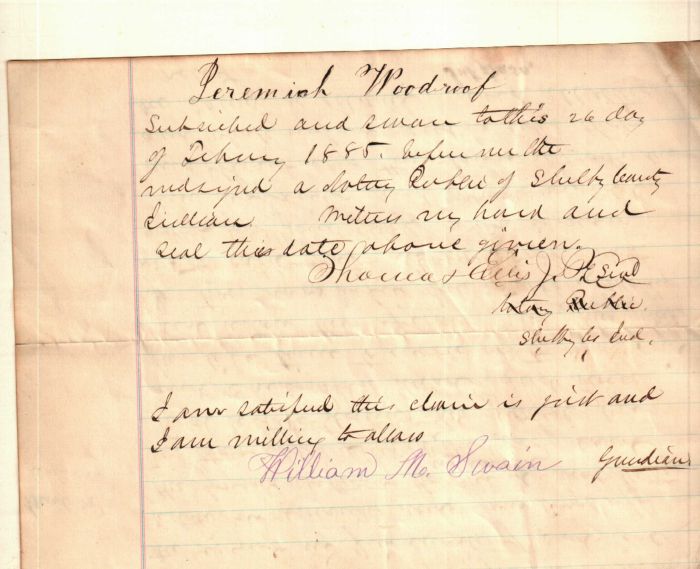 Jeremiah Woodroof
Subscribed and sworn to this 26 day
of Febuary 1885. before me the
undsignd a Notary Public of Shelby County
Indiana Witness my hand and
seal this date above given.
Thomas Ellis J. P. Seal
Notary Public
Shelby Co Ind.
I am satisfied this claim is just and
I am willing to allow
William M. Swain Guardian